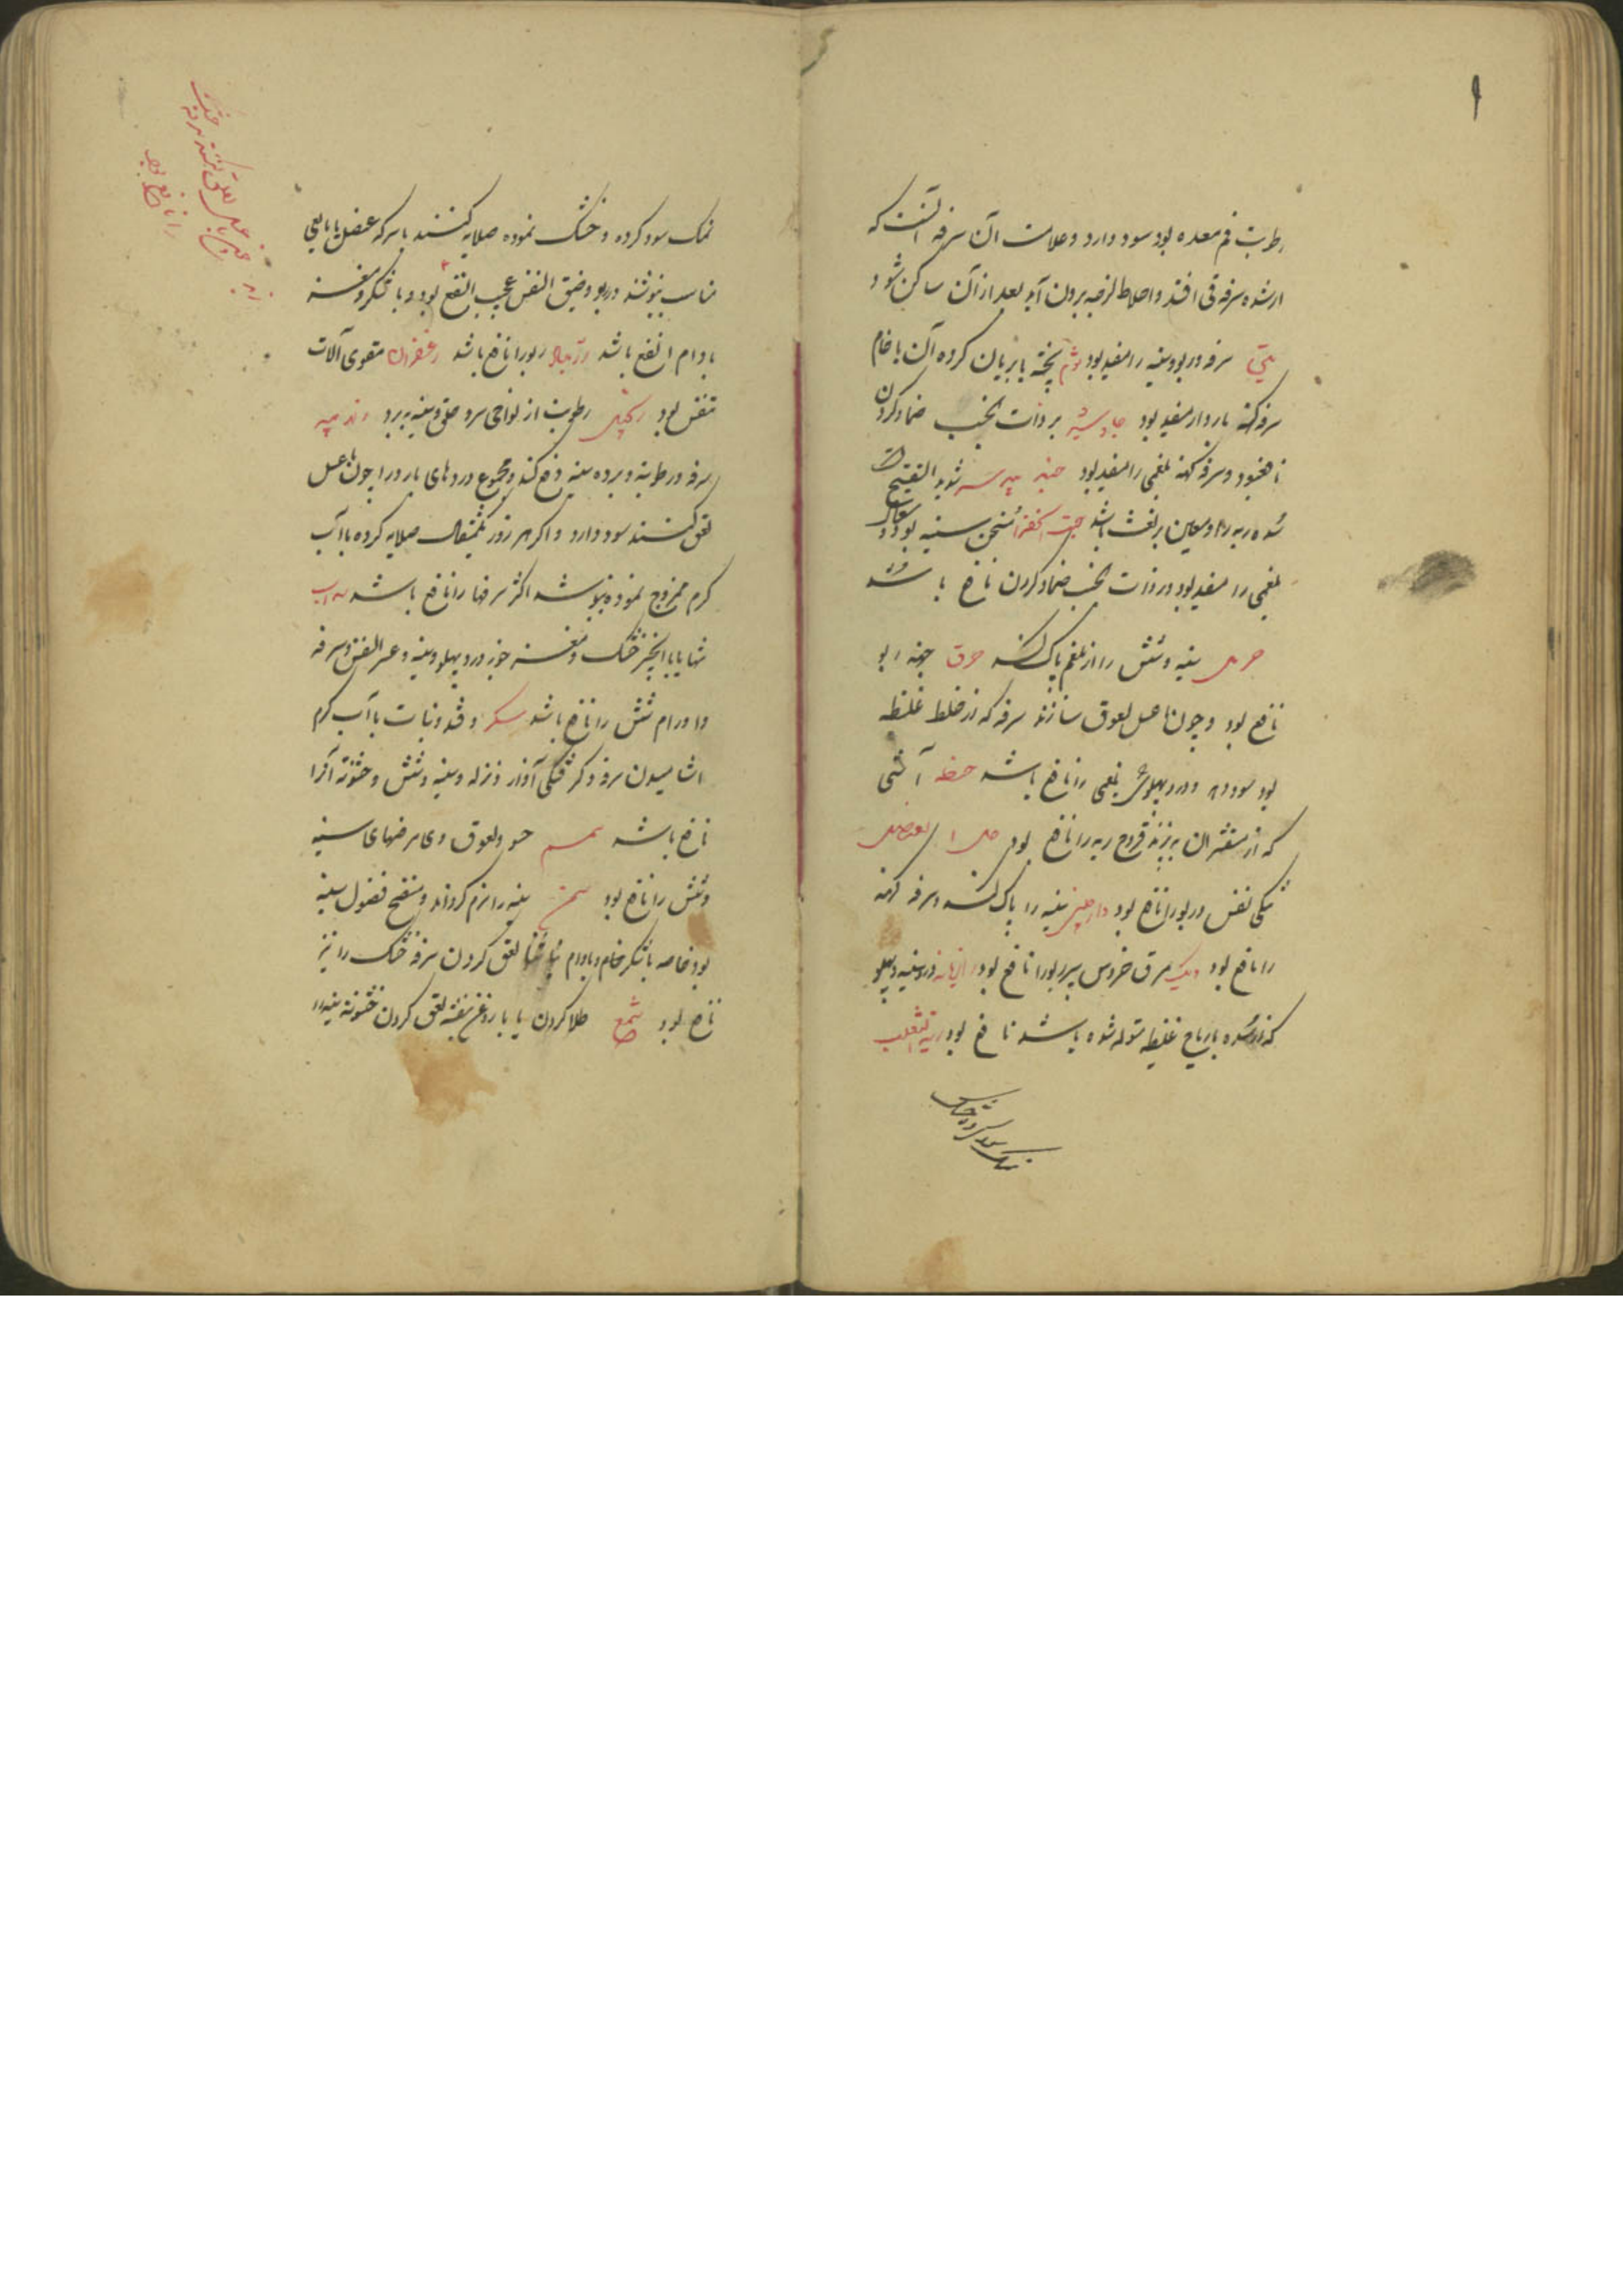 رطوبت فم معده بود سود دارد و علامت آن سرفه آنست که
از شده سرفه قی افتد و اخلاط لزجه برون آید بعد از آن ساکن شود
سرفه و ربو و سینه را مفید بود ثوم پخته یا بریان کرده آن یا خام
سرفه کهنه بارد را مفید بود جاوشیر بر ذات الجنب ضماد کردن
نافع بود و سرفه کهنه بلغمی را مفید بود شدید التفتیح
سده ریه را و معین بر نفث باشد جبت الخضرا مسخن سینه بود و سعال
بلغمی را مفید بود در ذات الجنب ضماد کردن نافع باشد
حرمل سینه و شش را از بلغم پاک کند حرف جهة ربو
نافع بود و چون با عسل لعوق سازند سرفه که از خلط غلیظ
بود سود دهد و درد پهلوی بلغمی را نافع باشد حنطه آشی
که از مقشر آن بپزند قروح ریه را نافع بود
تنگی نفس و ربو را نافع بود دارچینی سینه را پاک کند و سرفه کهنه
را نافع بود دیک مرق خروس پیر ربو را نافع بود رازیانه درد سینه و پهلو
که از سده یا ریاح غلیظ متولد شده باشد نافع بود ریة الثعلب
نمک سود کرده خشک
نمک سود کرده و خشک نموده صلایه کنند با سرکه عنصل یا مایعی
مناسب بنوشند در ربو و ضیق النفس عجیب النفع بود و با شکر و مغز
بادام انفع باشد ربو را نافع باشد زعفران مقوی آلات
تنفس بود زنجبیل رطوبت از نواحی سر و حلق و سینه ببرد
سرفه و رطوبة و برودة سینه دفع کند و مجموع دردهای بارد را چون با عسل
لعق کنند سود دارد و اگر هر روز یکمثقال صلایه کرده با آب
گرم ممزوج نموده بنوشند اکثر سرفها را نافع باشد سداب
تنها یا با انجیر خشک و مغز جوز درد پهلو و سینه و عسر النفس و سرفه
و اورام شش را نافع باشد سکر و قند و نبات با آب گرم
آشامیدن سرفه و گرفتگی آواز و نزله و سینه و شش و خشونة آنرا
نافع باشد سمسم حسو و لعوق وی مرضهای سینه
و شش را نافع بود سمن سینه را نرم گرداند و منضج فضول سینه
بود خاصه با شکر خام و بادام لعق کردن سرفه خشک را نیز
نافع بود شمع طلا کردن یا با روغن بنفشه لعق کردن خشونة سینه را